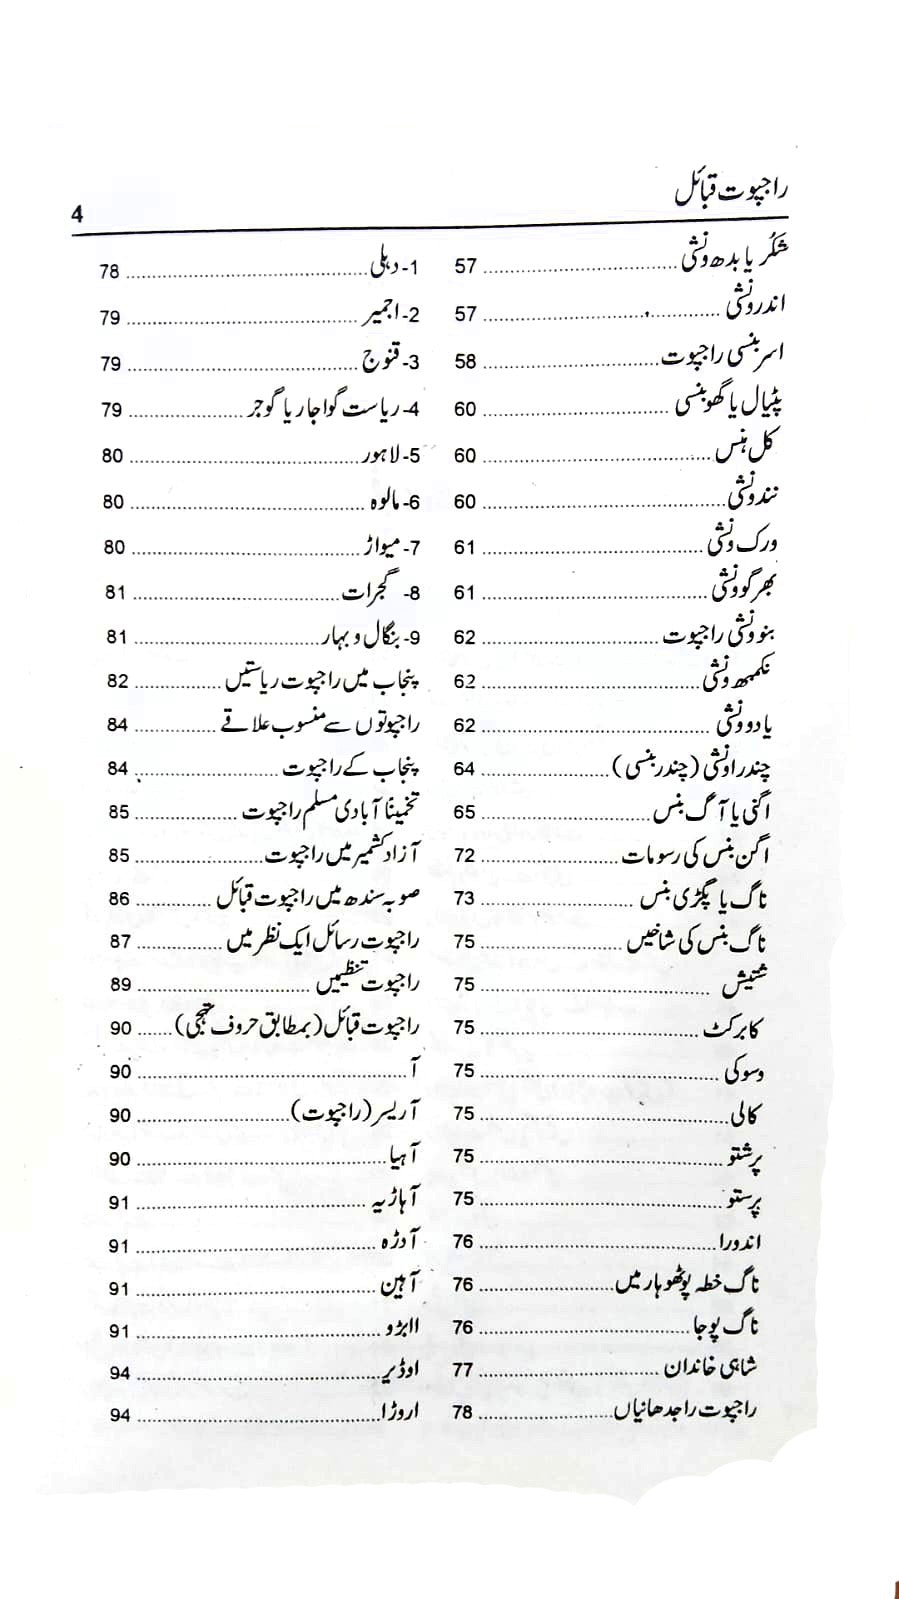 راجپوت قبائل
4
شکر یا بدھ ونشی 57
اندر ونشی 57
اسر بنسی راجپوت 58
پٹیال یا گھو بنسی 60
کل ہنس 60
نند ونشی 60
ورک ونشی 61
بھرگو ونشی 61
بنو ونشی راجپوت 62
نکمبھ ونشی 62
یادو ونشی 62
چندر اونشی (چندر بنسی) 64
اگنی یا آگ بنس 65
اگن بنس کی رسومات 72
ناگ یا پگڑی بنس 73
ناگ بنس کی شاخیں 75
شتیش 75
کابرکٹ 75
وسوکی 75
کالی 75
پرشتو 75
پرستو 75
اندورا 76
ناگ خطہ پوٹھوہار میں 76
ناگ پوجا 76
شاہی خاندان 77
راجپوت راجدھانیاں 78
1- دہلی 78
2- اجمیر 79
3- قنوج 79
4- ریاست گواجار یا گوجر 79
5- لاہور 80
6- مالوہ 80
7- میواڑ 80
8- گجرات 81
9- بنگال و بہار 81
پنجاب میں راجپوت ریاستیں 82
راجپوتوں سے منسوب علاقے 84
پنجاب کے راجپوت 84
تخمیناً آبادی مسلم راجپوت 85
آزاد کشمیر میں راجپوت 85
صوبہ سندھ میں راجپوت قبائل 86
راجپوت رسائل ایک نظر میں 87
راجپوت تنظیمیں 89
راجپوت قبائل (بمطابق حروف تہجی) 90
آ 90
آریسر (راجپوت) 90
آہیا 90
آہاڑیہ 91
آدڑہ 91
آہین 91
اابڑو 91
اوڈیر 94
اروڑا 94